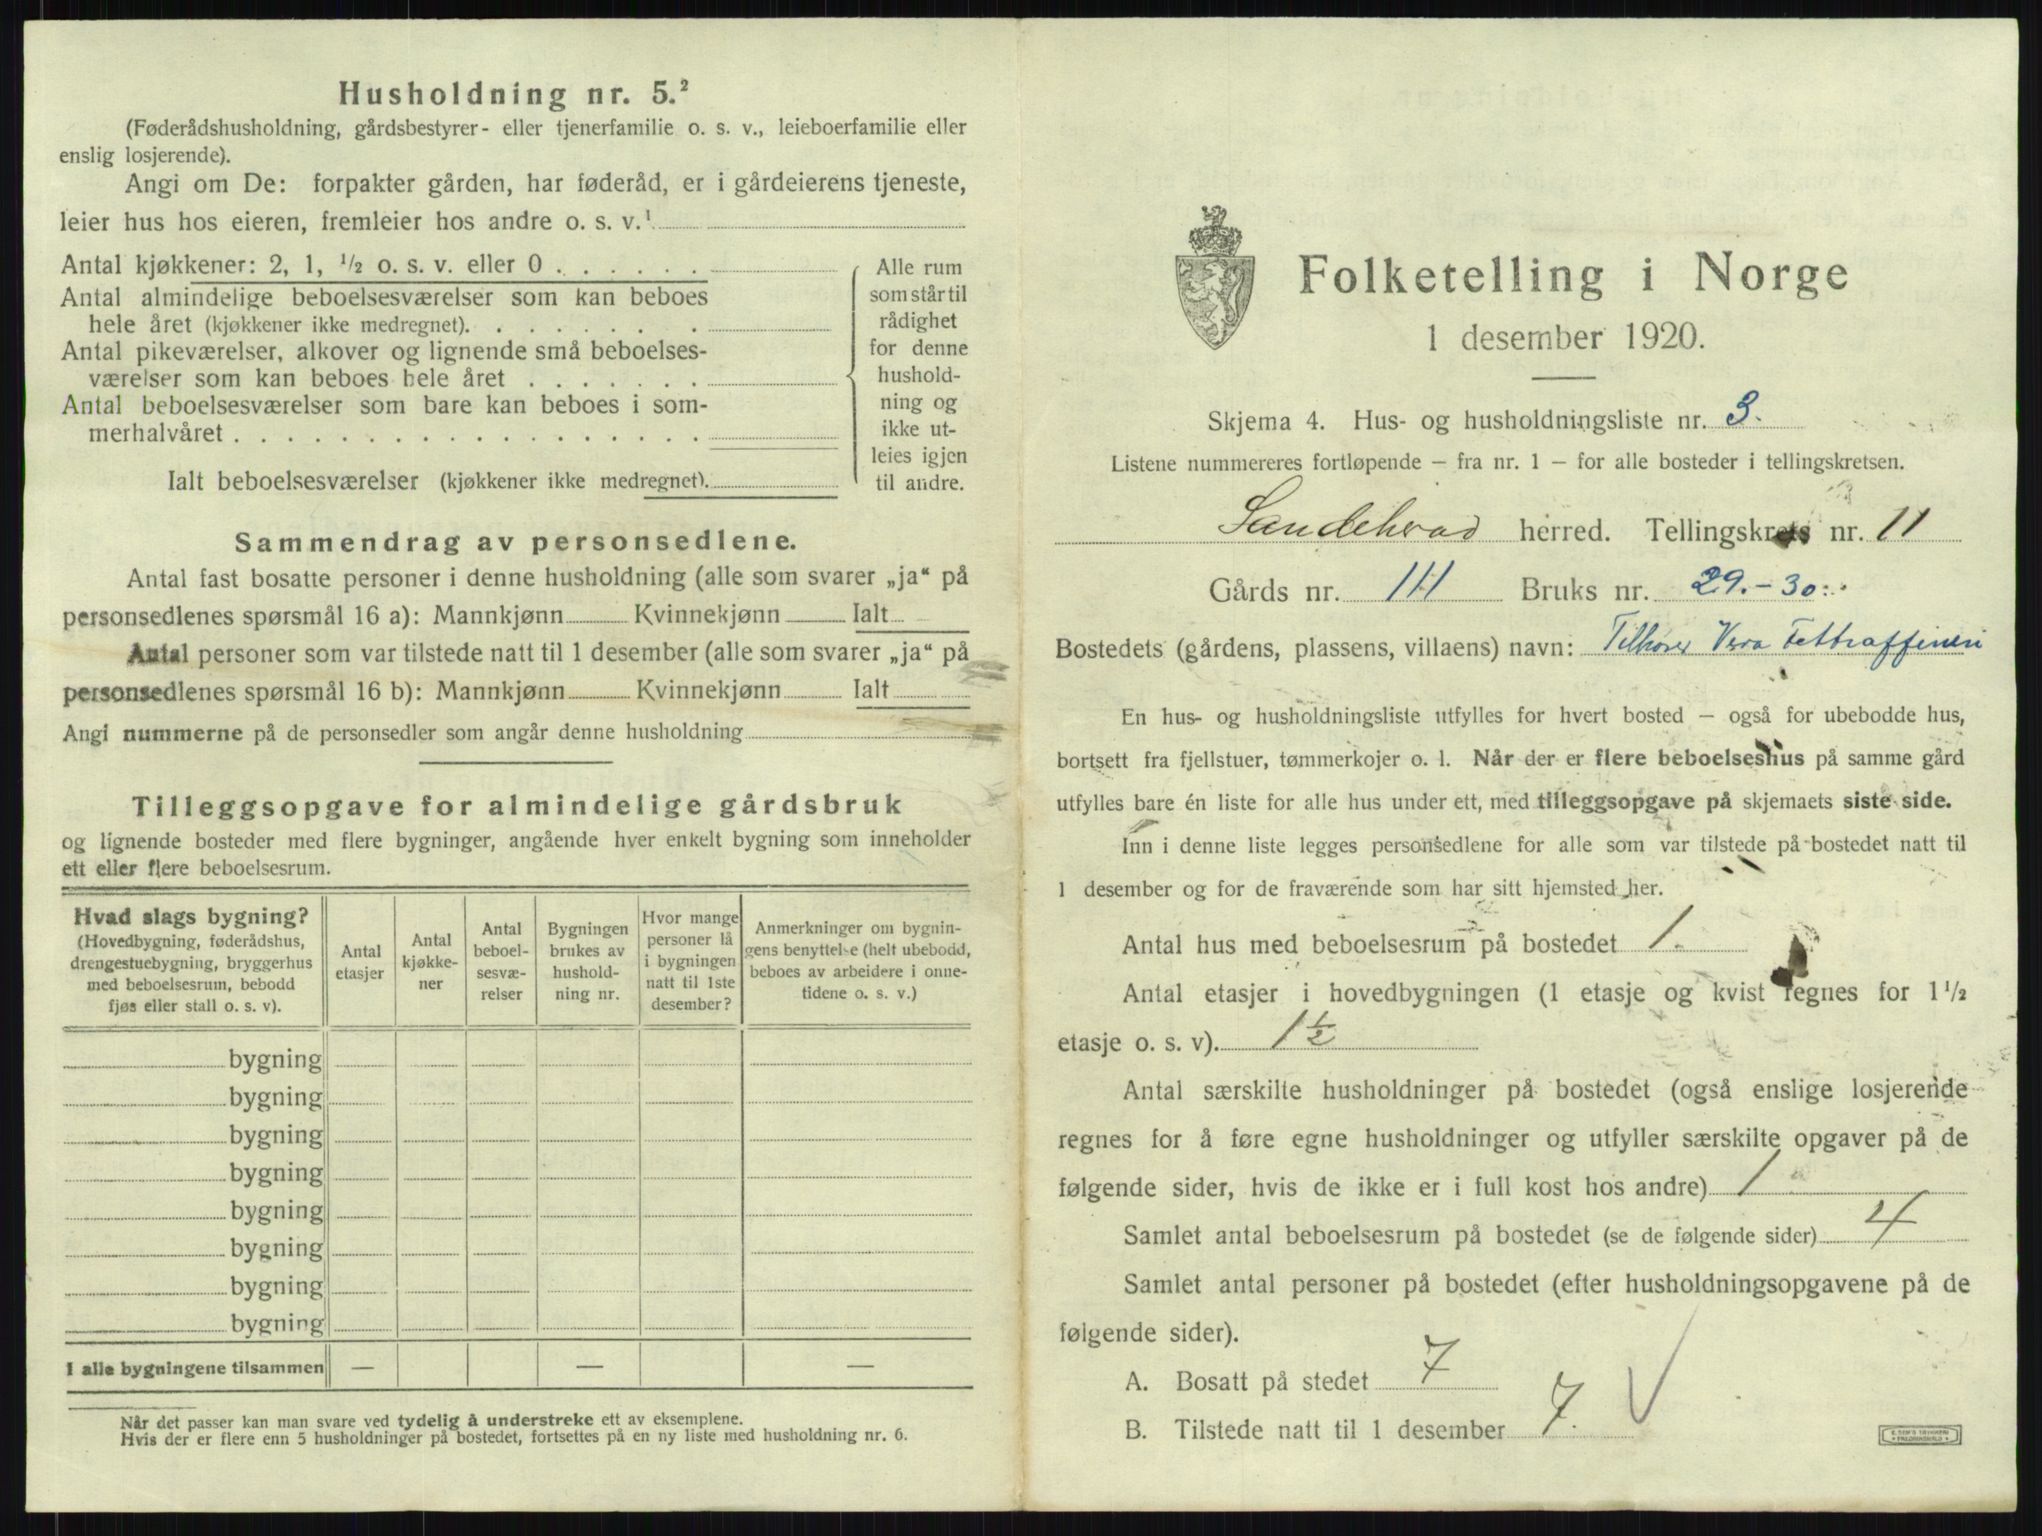 Husholdning nr. 5.²
(Føderådshusholdning, gårdsbestyrer- eller tjenerfamilie o. s. v., leieboerfamilie eller
enslig losjerende).
Angi om De: forpakter gården, har føderåd, er i gårdeierens tjeneste,
leier hus hos eieren, fremleier hos andre o. s. v.¹
Antal kjøkkener: 2, 1, ½ o. s. v. eller 0
Antal almindelige beboelsesværelser som kan beboes
hele året (kjøkkener ikke medregnet).
Antal pikeværelser, alkover og lignende små beboelses-
værelser som kan beboes hele året
Antal beboelsesværelser som bare kan beboes i som-
merhalvåret
Ialt beboelsesværelser (kjøkkener ikke medregnet).
Alle rum
som står til
rådighet
for denne
hushold-
ning og
ikke ut-
leies igjen
til andre.
Sammendrag av personsedlene.
Antal fast bosatte personer i denne husholdning (alle som svarer „ja“ på
personsedlenes spørsmål 16 a): Mannkjønn Kvinnekjønn Ialt
Antal personer som var tilstede natt til 1 desember (alle som svarer „ja“ på
personsedlenes spørsmål 16 b): Mannkjønn Kvinnekjønn Ialt
Angi nummerne på de personsedler som angår denne husholdning
Tilleggsopgave for almindelige gårdsbruk
og lignende bosteder med flere bygninger, angående hver enkelt bygning som inneholder
ett eller flere beboelsesrum.
Hvad slags bygning?
(Hovedbygning, føderådshus,
drengestuebygning, bryggerhus
med beboelsesrum, bebodd
fjøs eller stall o. s. v).
Antal
etasjer
Antal
kjøkke-
ner
Antal
beboel-
sesvæ-
relser
Bygningen
brukes av
hushold-
ning nr.
Hvor mange
personer lå
i bygningen
natt til 1ste
desember?
Anmerkninger om bygnin-
gens benyttelse (helt ubebodd,
beboes av arbeidere i onne-
tidene o. s. v.)
bygning
bygning
bygning
bygning
bygning
bygning
bygning
bygning
I alle bygningene tilsammen — — —
Når det passer kan man svare ved tydelig å understreke ett av eksemplene.
Hvis der er flere enn 5 husholdninger på bostedet, fortsettes på en ny liste med husholdning nr. 6.
Folketelling i Norge
1 desember 1920.
Skjema 4. Hus- og husholdningsliste nr. 3.
Listene nummereres fortløpende – fra nr. 1 – for alle bosteder i tellingskretsen.
Sandeherad herred. Tellingskrets nr. 11
Gårds nr. 111 Bruks nr. 29.-30.
Bostedets (gårdens, plassens, villaens) navn: Tilhører Vera Fettraffineri
En hus- og husholdningsliste utfylles for hvert bosted – også for ubebodde hus,
bortsett fra fjellstuer, tømmerkojer o. l. Når der er flere beboelseshus på samme gård
utfylles bare én liste for alle hus under ett, med tilleggsopgave på skjemaets siste side.
Inn i denne liste legges personsedlene for alle som var tilstede på bostedet natt til
1 desember og for de fraværende som har sitt hjemsted her.
Antal hus med beboelsesrum på bostedet 1.
Antal etasjer i hovedbygningen (1 etasje og kvist regnes for 1½
etasje o. s. v). 1½
Antal særskilte husholdninger på bostedet (også enslige losjerende
regnes for å føre egne husholdninger og utfyller særskilte opgaver på de
følgende sider, hvis de ikke er i full kost hos andre) 1
Samlet antal beboelsesrum på bostedet (se de følgende sider) 4
Samlet antal personer på bostedet (efter husholdningsopgavene på de
følgende sider).
A. Bosatt på stedet 7
B. Tilstede natt til 1 desember 7.